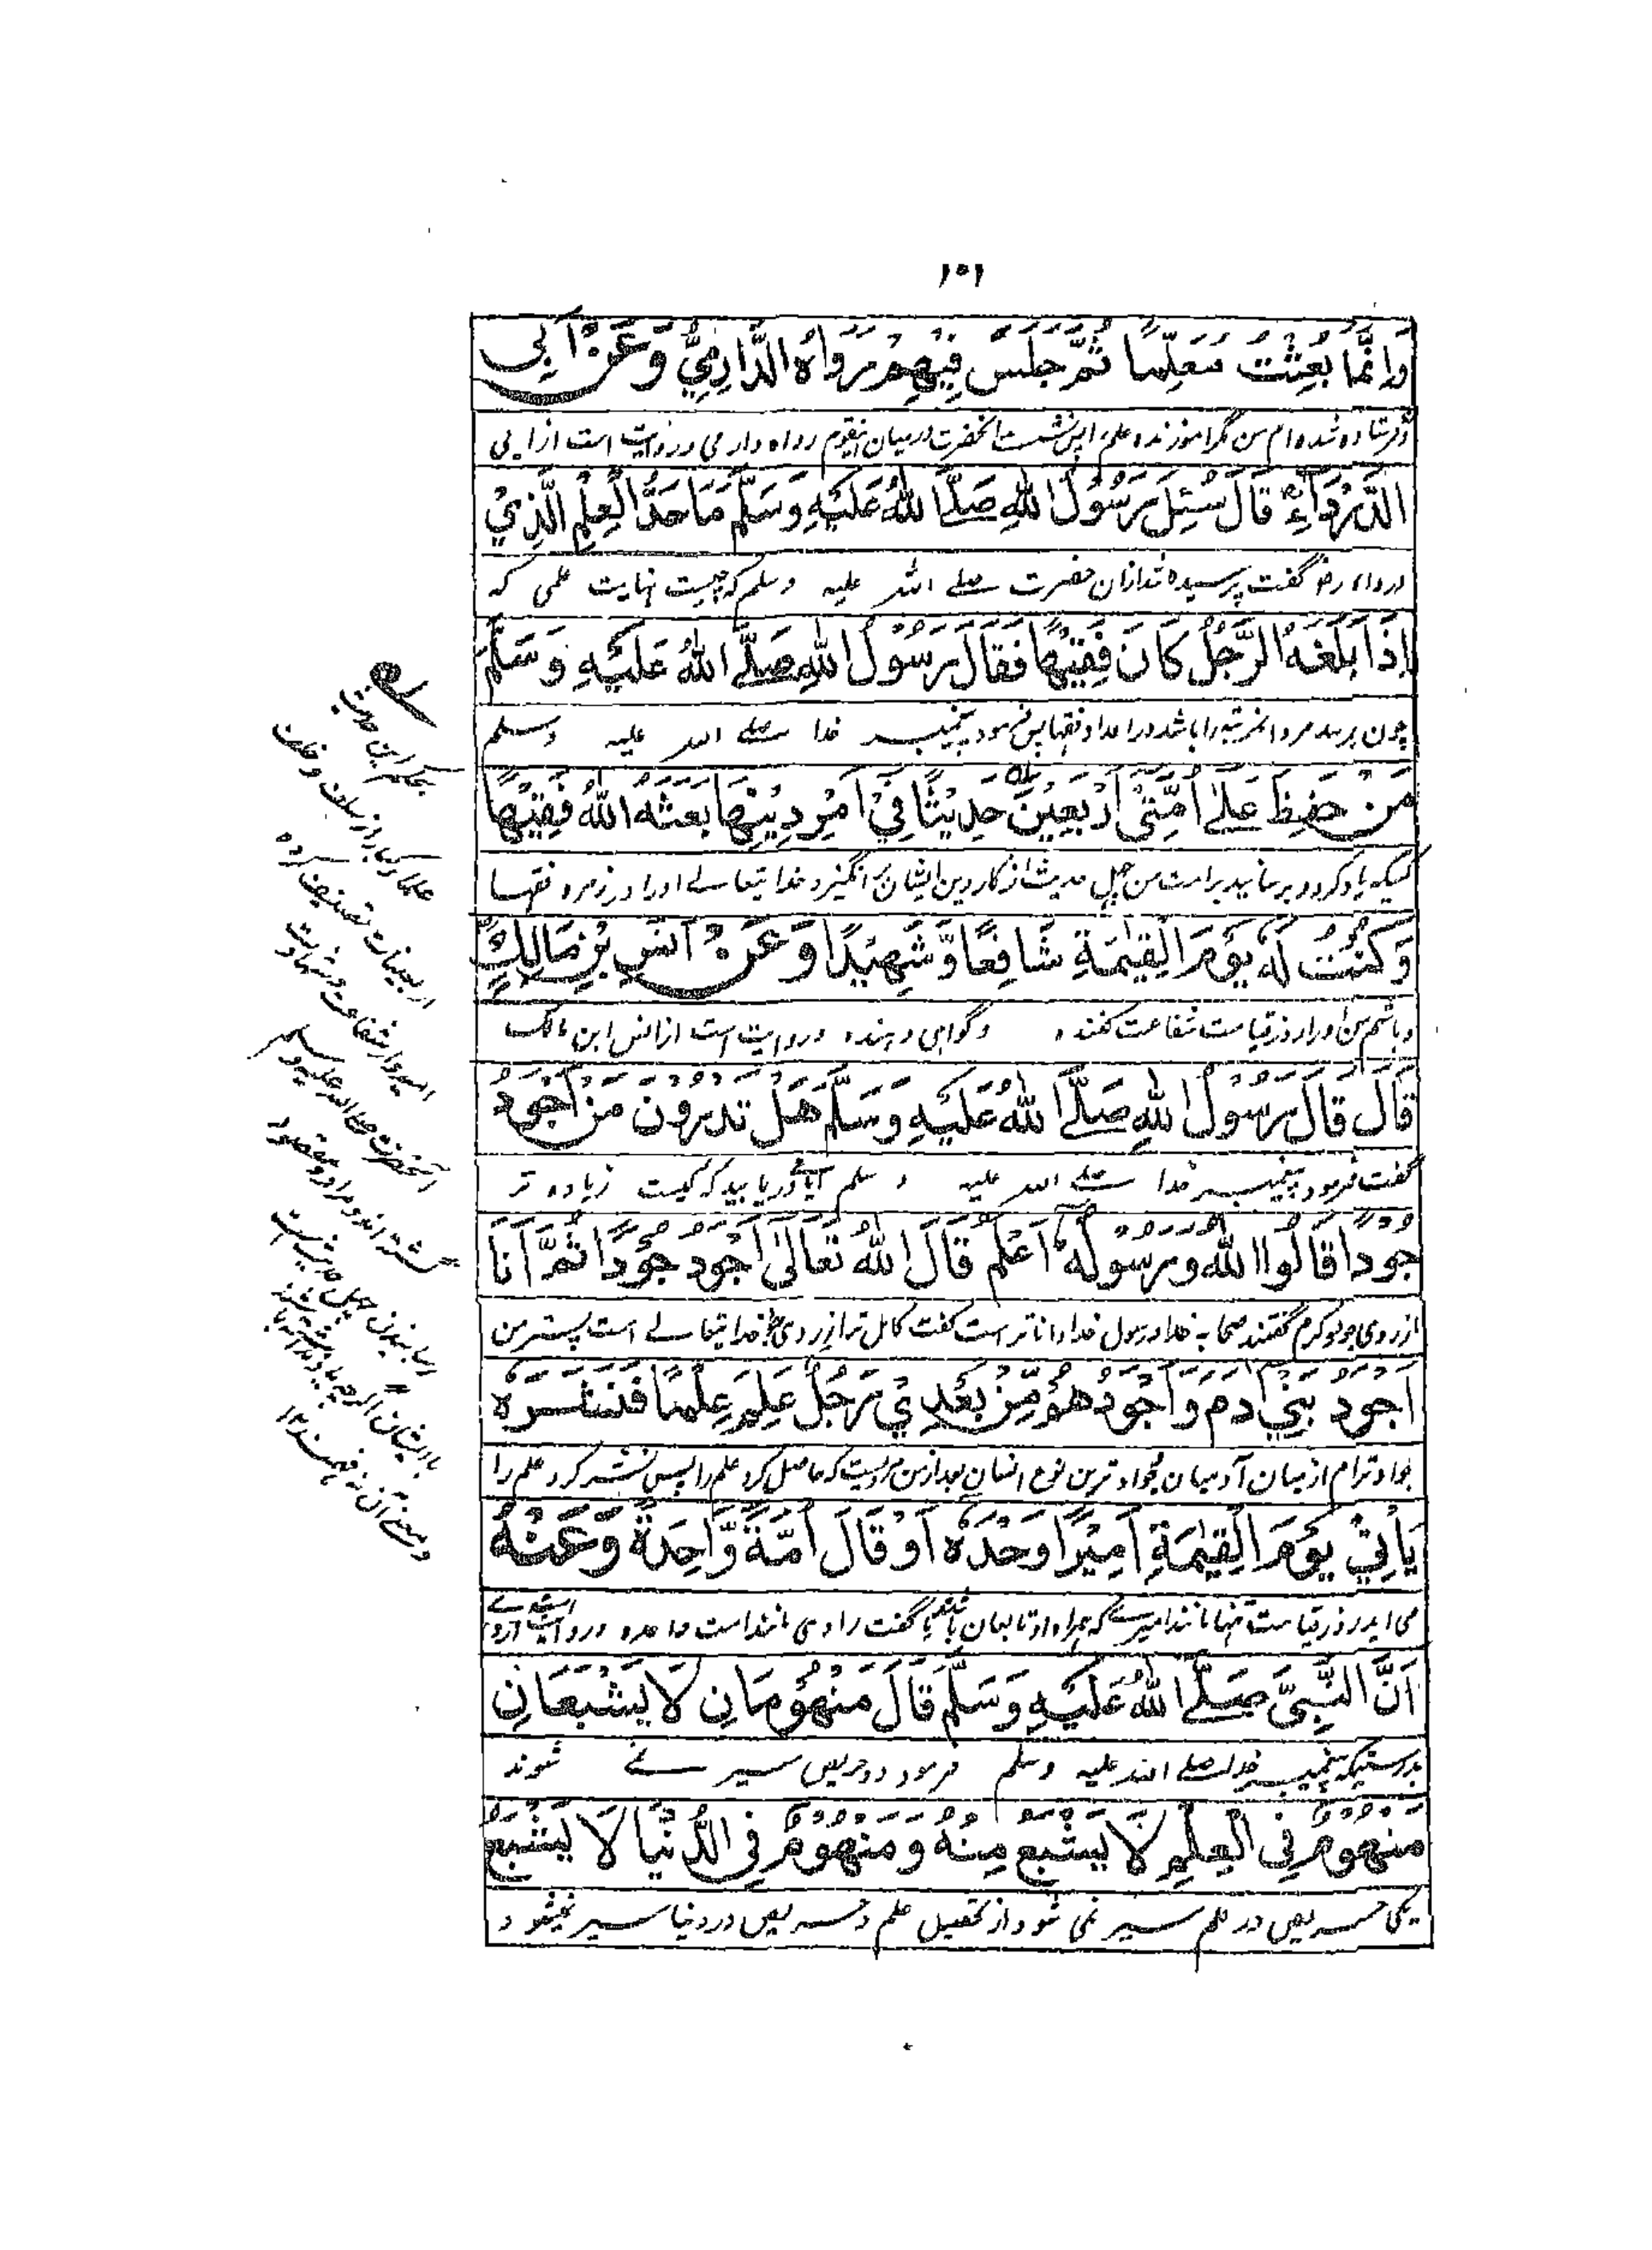 ۱۵۱
وَاِنَّمَا بُعِثْتُ مُعَلِّمًا ثُمَّ جَلَسَ فِيْهِمْ رَوَاهُ الدَّارِمِيُّ وَعَنْ اَبِى
فرستاده شده ام من مگر اموزنده علم پس نشست آنحضرت درمیان اینقوم رواه دارمی و روایت است از ابی
الدَّرْدَاءِ رض قَالَ سُئِلَ رَسُوْلُ اللهِ صَلَّى اللهُ عَلَيْهِ وَسَلَّمَ مَا حَدُّ الْعِلْمِ الَّذِيْ
درداء رض گفت پرسیده شد ازان حضرت صلے الله علیه وسلم که چیست نهایت علمی که
اِذَا بَلَغَهُ الرَّجُلُ كَانَ فَقِيْهًا فَقَالَ رَسُوْلُ اللهِ صَلَّى اللهُ عَلَيْهِ وَسَلَّمَ
چون برسد مرد انمرتبه را باشد در اعداد فقها پس فرمود پیغمبر خدا صلے الله علیه وسلم
مَنْ حَفِظَ عَلٰى اُمَّتِىْ اَرْبَعِيْنَ حَدِيْثًا فِيْ اَمْرِ دِيْنِهَا بَعَثَهُ اللهُ فَقِيْهًا
کسیکه یاد کرد و برسانید بر امت من چهل حدیث از کار دین ایشان برانگیزد خدا یتعالے او را در زمره فقها
وَكُنْتُ لَهٗ يَوْمَ الْقِيٰمَةِ شَافِعًا وَّشَهِيْدًا وَعَنْ اَنَسِ بْنِ مَالِكٍ
و باشم من او را روز قیامت شفاعت کننده و گواهی دهنده و روایت است از انس ابن مالک
قَالَ قَالَ رَسُوْلُ اللهِ صَلَّى اللهُ عَلَيْهِ وَسَلَّمَ هَلْ تَدْرُوْنَ مَنْ اَجْوَدُ
گفت فرمود پیغمبر خدا صلے الله علیه و سلم آیا درمی یابید که کیست زیاده تر
جُوْدًا قَالُوْا اللهُ وَرَسُوْلُهٗ اَعْلَمُ قَالَ اللهُ تَعَالٰى اَجْوَدُ جُوْدًا ثُمَّ اَنَا
از روی جود و کرم گفتند صحابه خدا و رسول خدا داناتر است گفت کامل تر از روی جود خدا یتعالے است پستر من
اَجْوَدُ بَنِيْ اٰدَمَ وَاَجْوَدُهُمْ مِّنْ بَعْدِيْ رَجُلٌ عَلِمَ عِلْمًا فَنَشَرَهٗ
جوادترام از میان آدمیان و جوادترین نوع انسان بعد از من مردیست که حاصل کرد علم را پس نشر کرد علم را
يَاْتِيْ يَوْمَ الْقِيٰمَةِ اَمِيْرًا وَحْدَهٗ اَوْ قَالَ اُمَّةً وَّاحِدَةً وَعَنْهُ
می اید روز قیامت تنها مانند امیرے که همراه او تابعان باشند یا گفت راوی مانند امت واحده و روایت است از وے
اَنَّ النَّبِىَّ صَلَّى اللهُ عَلَيْهِ وَسَلَّمَ قَالَ مَنْهُوْمَانِ لَا يَشْبَعَانِ
بدرستیکه پیغمبر خدا صلے الله علیه وسلم فرمود دو حریص سیر نے شوند
مَنْهُوْمٌ فِى الْعِلْمِ لَا يَشْبَعُ مِنْهُ وَمَنْهُوْمٌ فِى الدُّنْيَا لَا يَشْبَعُ
یکی حریص در علم سیر نمی شود از تحصیل علم و حریص در دنیا سیر نمیشود
بحکم این حدیث
علما کبار از سلف و خلف
اربعینات تصنیف کرده
امیدوار شفاعت و شهادت
آنحضرت صلی الله علیه وسلم
گشته اند و مراد و مقصود
رسانیدن چهل حدیث است
و معنی آن نه فهمند ۱۲